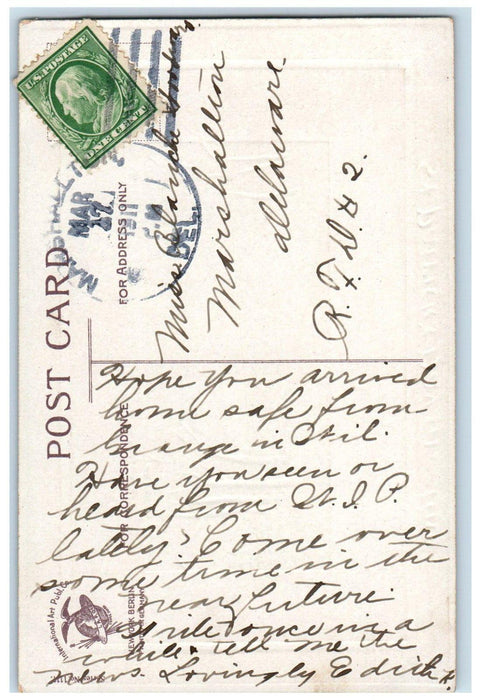 U.S. POSTAGE
ONE CENT
MAR
1911
DEL.
POST CARD
FOR ADDRESS ONLY
FOR CORRESPONDENCE
Miss Blanche
Marshallton
Delaware
R. F. D. # 2.
Hope you arrived
home safe from
Grange in Phil.
Have you seen or
heard from W. I. P.
lately? Come over
some time in the
near future.
Write once in a
while & tell me the
news. Lovingly Edith
International Art Publ. Co.
NEW YORK BERLIN